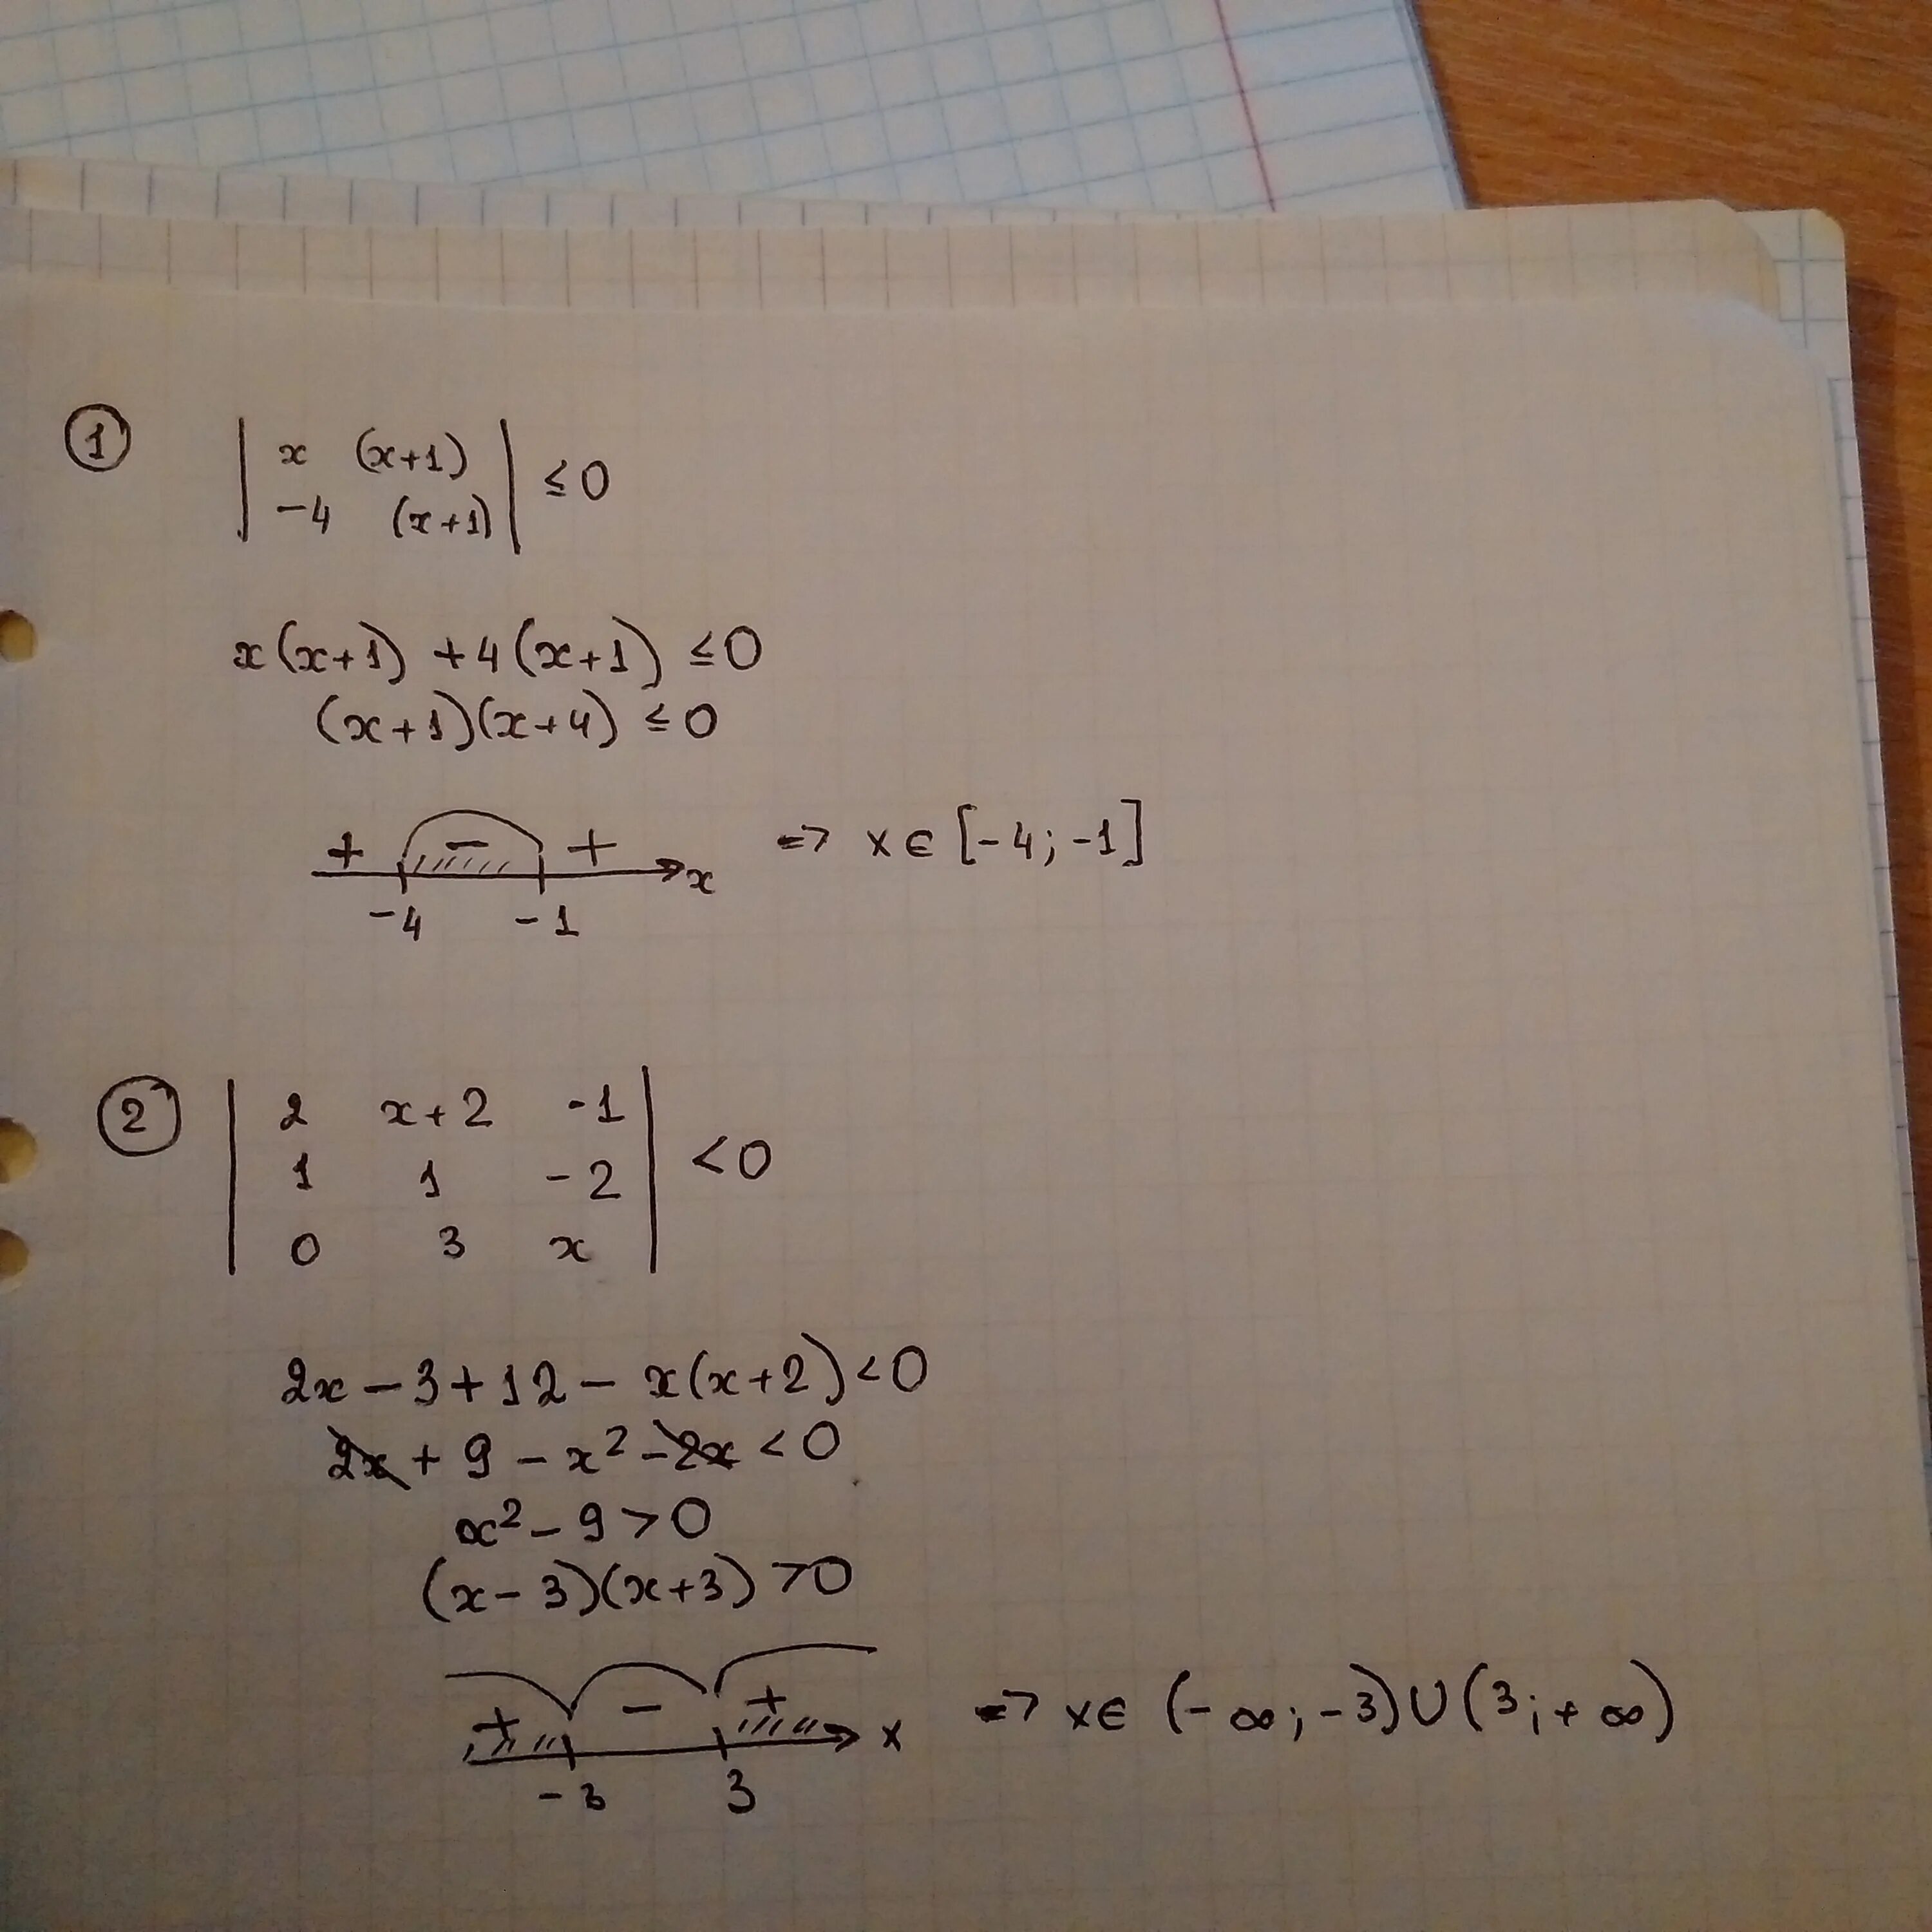 1
| x (x+1) | ≤ 0
| -4 (x+1) |
x(x+1) + 4(x+1) ≤ 0
(x+1)(x+4) ≤ 0
+ - + x
-4 -1
=> x ∈ [-4; -1]
2
| 2 x+2 -1 |
| 1 1 -2 | < 0
| 0 3 x |
2x - 3 + 12 - x(x+2) < 0
2x + 9 - x² - 2x < 0
x² - 9 > 0
(x-3)(x+3) > 0
+ - + x
-3 3
=> x ∈ (-∞; -3) ∪ (3; +∞)